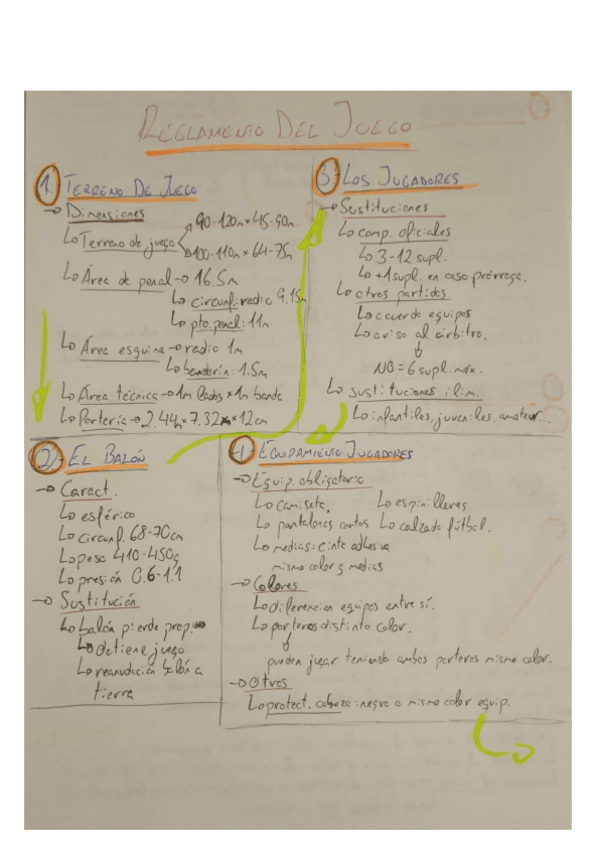 REGLAMENTO DEL JUEGO
1. TERRENO DE JUEGO
→ Dimensiones
↳ Terreno de juego
90-120m × 45-90m
100-110m × 64-75m
↳ Área de penal → 16.5m
↳ circunf: radio 9.15m
↳ pto. penal: 11m
↳ Área esquina → radio 1m
↳ banderín: 1.5m
↳ Área técnica → 1m lados × 1m banda
↳ Portería → 2.44m × 7.32 × 12cm
2. EL BALÓN
→ Caract.
↳ esférico
↳ circunf. 68-70cm
↳ peso 410-450g
↳ presión 0.6-1.1
→ Sustitución
↳ balón pierde prop.
↳ detiene juego
↳ reanudación balón a
tierra
3. LOS JUGADORES
→ Sustituciones
↳ comp. oficiales
↳ 3-12 supl.
↳ +1 supl. en caso prórroga.
↳ otros partidos
↳ acuerdo equipos
↳ aviso al árbitro.
↓
NO = 6 supl. máx.
↳ sustituciones ilim.
↳ infantiles, juveniles, amateur...
4. EQUIPAMIENTO JUGADORES
→ Equip. obligatorio
↳ camiseta. ↳ espinilleras
↳ pantalones cortos ↳ calzado fútbol.
↳ medias: cinta adhesiva
mismo color q medias
→ Colores
↳ diferencien equipos entre sí.
↳ porteros distinto color.
↓
pueden jugar teniendo ambos porteros mismo color.
→ Otros
↳ protect. cabeza: negro o mismo color equip.